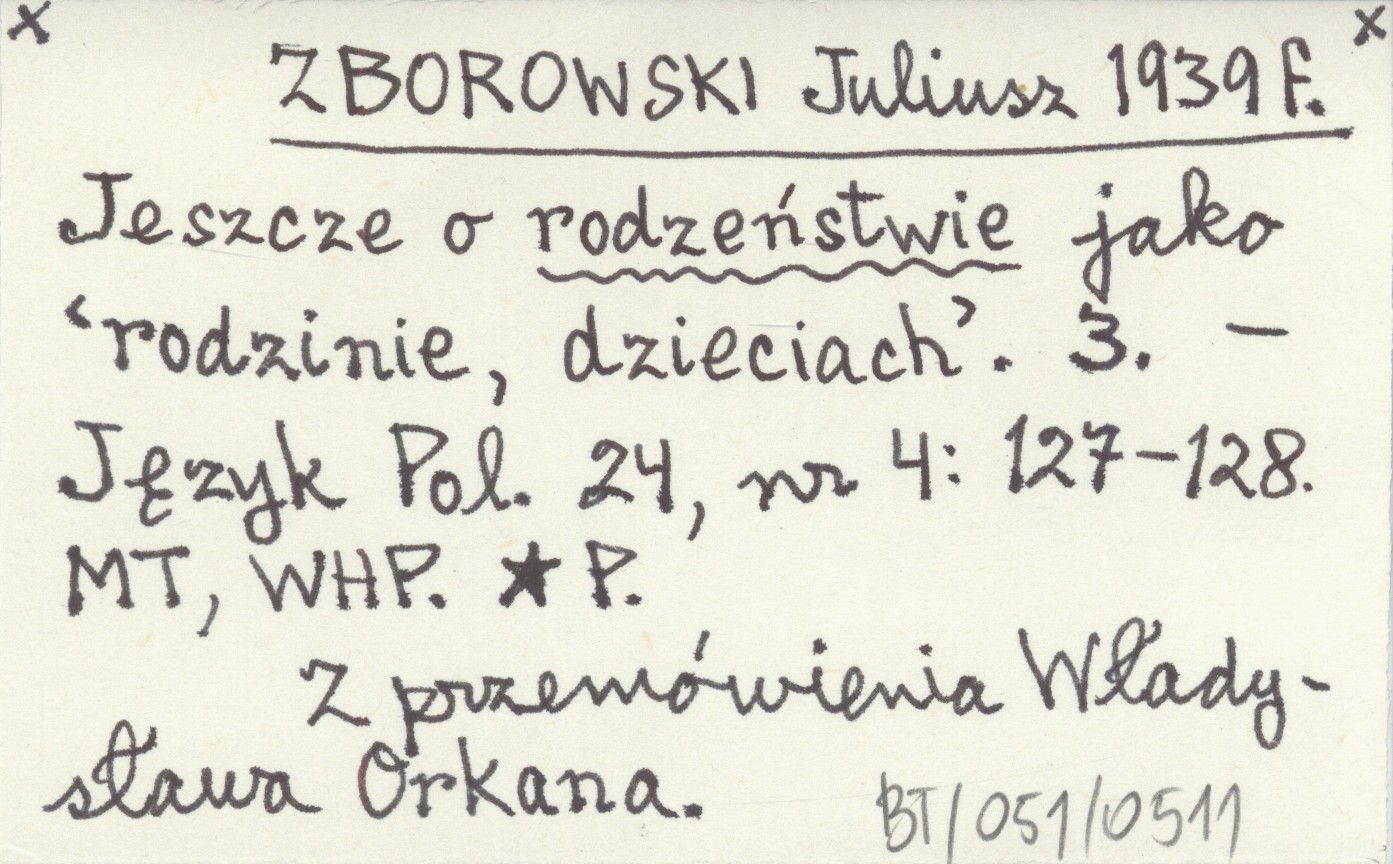 x x
ZBOROWSKI Juliusz 1939 f.
Jeszcze o rodzeństwie jako
‘rodzinie, dzieciach’. 3. –
Język Pol. 24, nr 4: 127–128.
MT, WHP. ★ P.
Z przemówienia Włady-
sława Orkana.
BT/051/0511